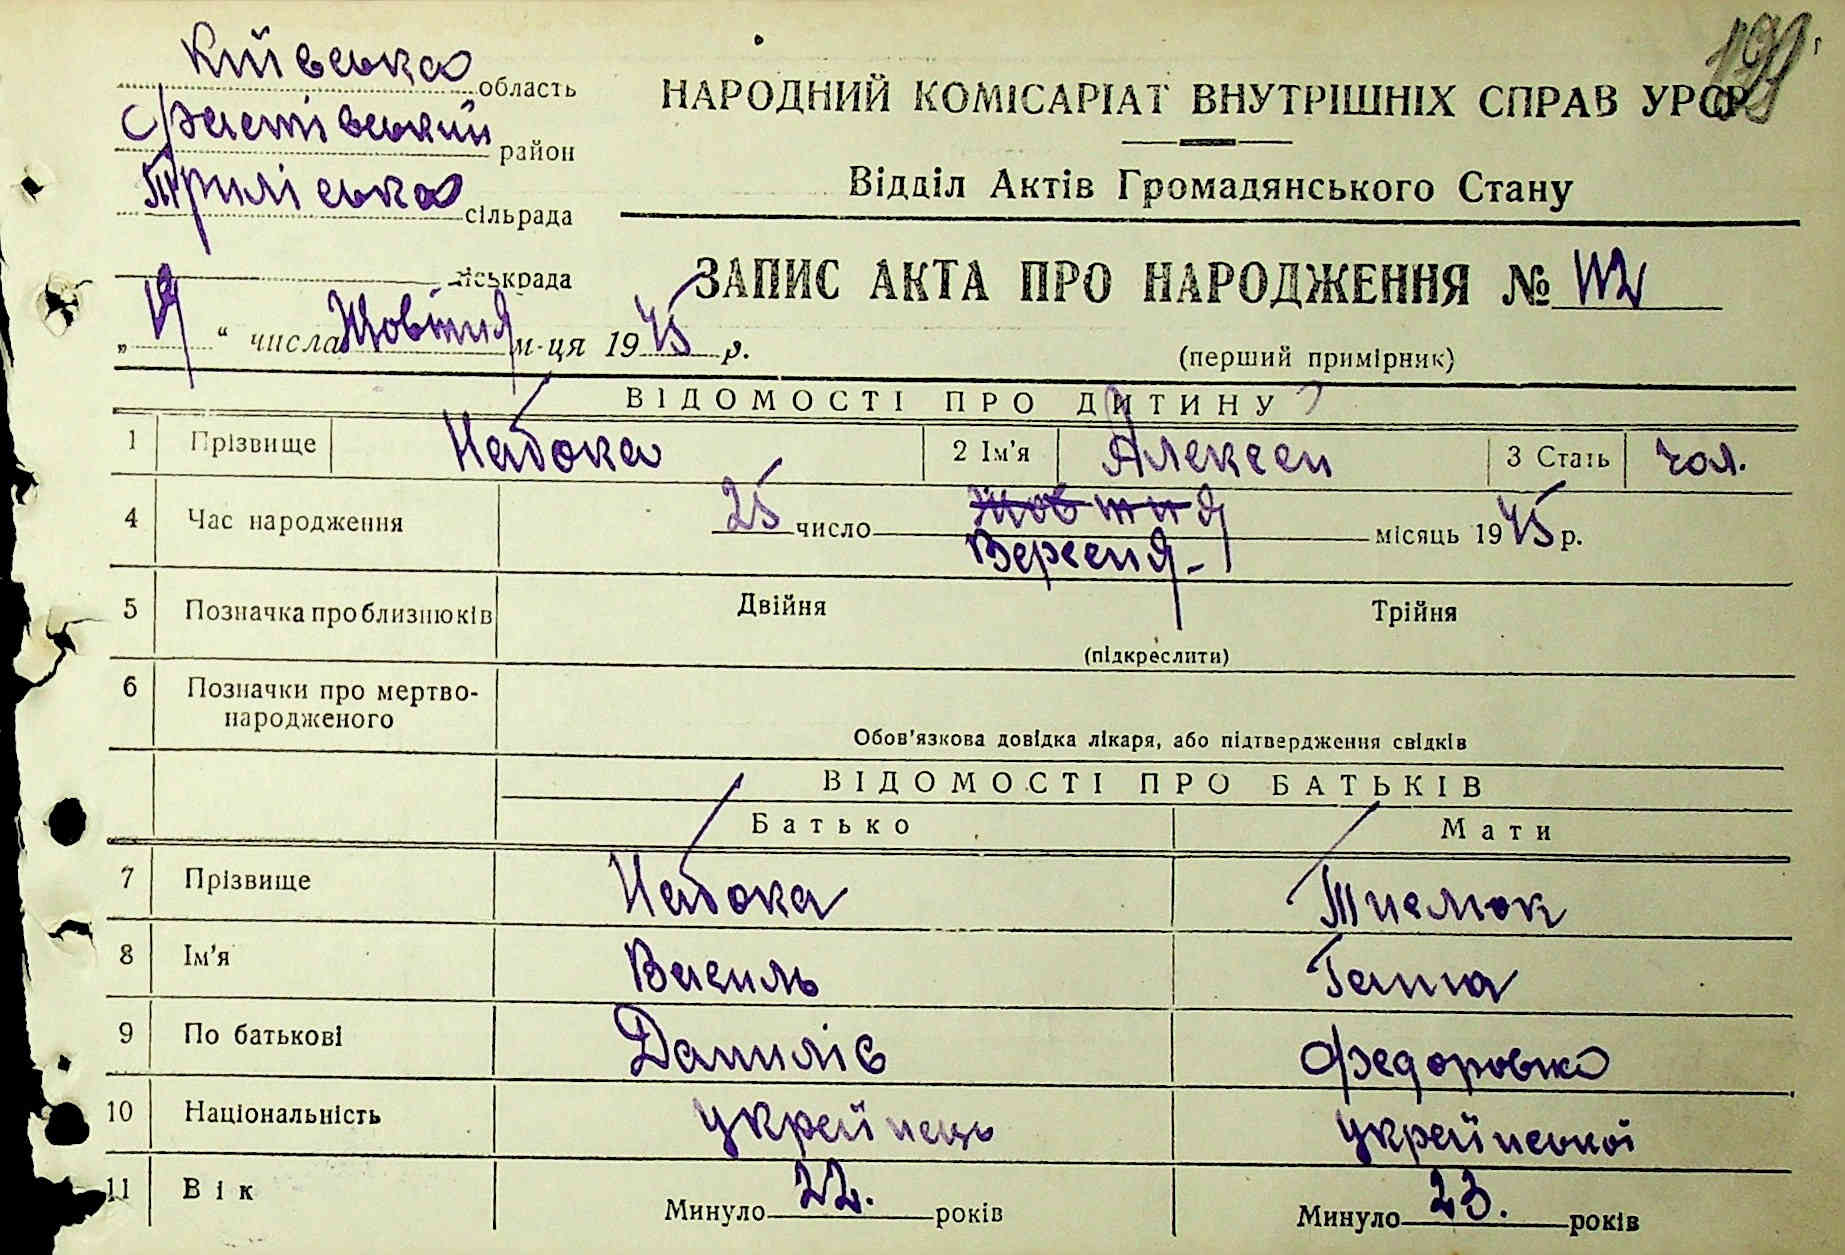 Київська область
Фастівський район
Трилісська сільрада
міськрада
„19“ числа Жовтня м-ця 1945 р.
НАРОДНИЙ КОМІСАРІАТ ВНУТРІШНІХ СПРАВ УРСР
Відділ Актів Громадянського Стану
ЗАПИС АКТА ПРО НАРОДЖЕННЯ №
(перший примірник)
ВІДОМОСТІ ПРО ДИТИНУ
1 Прізвище Набока 2 Ім'я Алексей 3 Стать чол.
4 Час народження 25 число Жовтня Вересня - місяць 1945 р.
5 Позначка про близнюків Двійня Трійня
(підкреслити)
6 Позначки про мертво-
народженого
Обов'язкова довідка лікаря, або підтвердження свідків
ВІДОМОСТІ ПРО БАТЬКІВ
Батько Мати
7 Прізвище Набока
8 Ім'я Василь Ганна
9 По батькові Даниліє Федоровна
10 Національність українець української
11 Вік Минуло 22. років Минуло 23. років